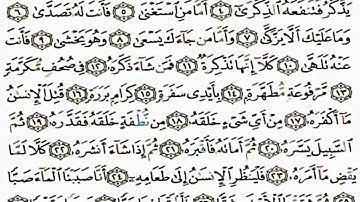 يَذَّكَّرُ فَتَنفَعَهُ ٱلذِّكْرَىٰٓ ٤ أَمَّا مَنِ ٱسْتَغْنَىٰ ٥ فَأَنتَ لَهُۥ تَصَدَّىٰ ٦
وَمَا عَلَيْكَ أَلَّا يَزَّكَّىٰ ٧ وَأَمَّا مَن جَآءَكَ يَسْعَىٰ ٨ وَهُوَ يَخْشَىٰ ٩ فَأَنتَ
عَنْهُ تَلَهَّىٰ ١٠ كَلَّآ إِنَّهَا تَذْكِرَةٌ ١١ فَمَن شَآءَ ذَكَرَهُۥ ١٢ فِى صُحُفٍ مُّكَرَّمَةٍ
١٣ مَّرْفُوعَةٍ مُّطَهَّرَةٍۭ ١٤ بِأَيْدِى سَفَرَةٍ ١٥ كِرَامٍۭ بَرَرَةٍ ١٦ قُتِلَ ٱلْإِنسَـٰنُ
مَآ أَكْفَرَهُۥ ١٧ مِنْ أَىِّ شَىْءٍ خَلَقَهُۥ ١٨ مِن نُّطْفَةٍ خَلَقَهُۥ فَقَدَّرَهُۥ ١٩ ثُمَّ
ٱلسَّبِيلَ يَسَّرَهُۥ ٢٠ ثُمَّ أَمَاتَهُۥ فَأَقْبَرَهُۥ ٢١ ثُمَّ إِذَا شَآءَ أَنشَرَهُۥ ٢٢ كَلَّا لَمَّا
يَقْضِ مَآ أَمَرَهُۥ ٢٣ فَلْيَنظُرِ ٱلْإِنسَـٰنُ إِلَىٰ طَعَامِهِۦٓ ٢٤ أَنَّا صَبَبْنَا ٱلْمَآءَ صَبًّا